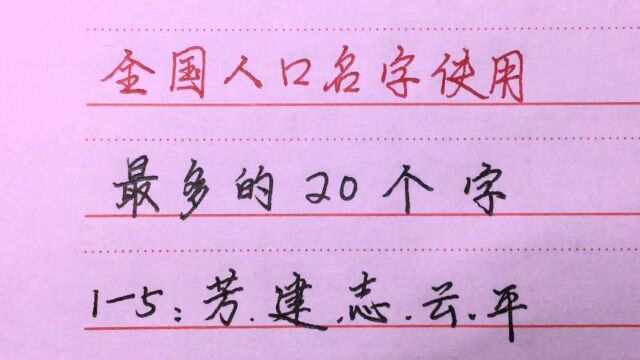 全国人口名字使用
最多的20个字
1-5:芳.建.志.云.平